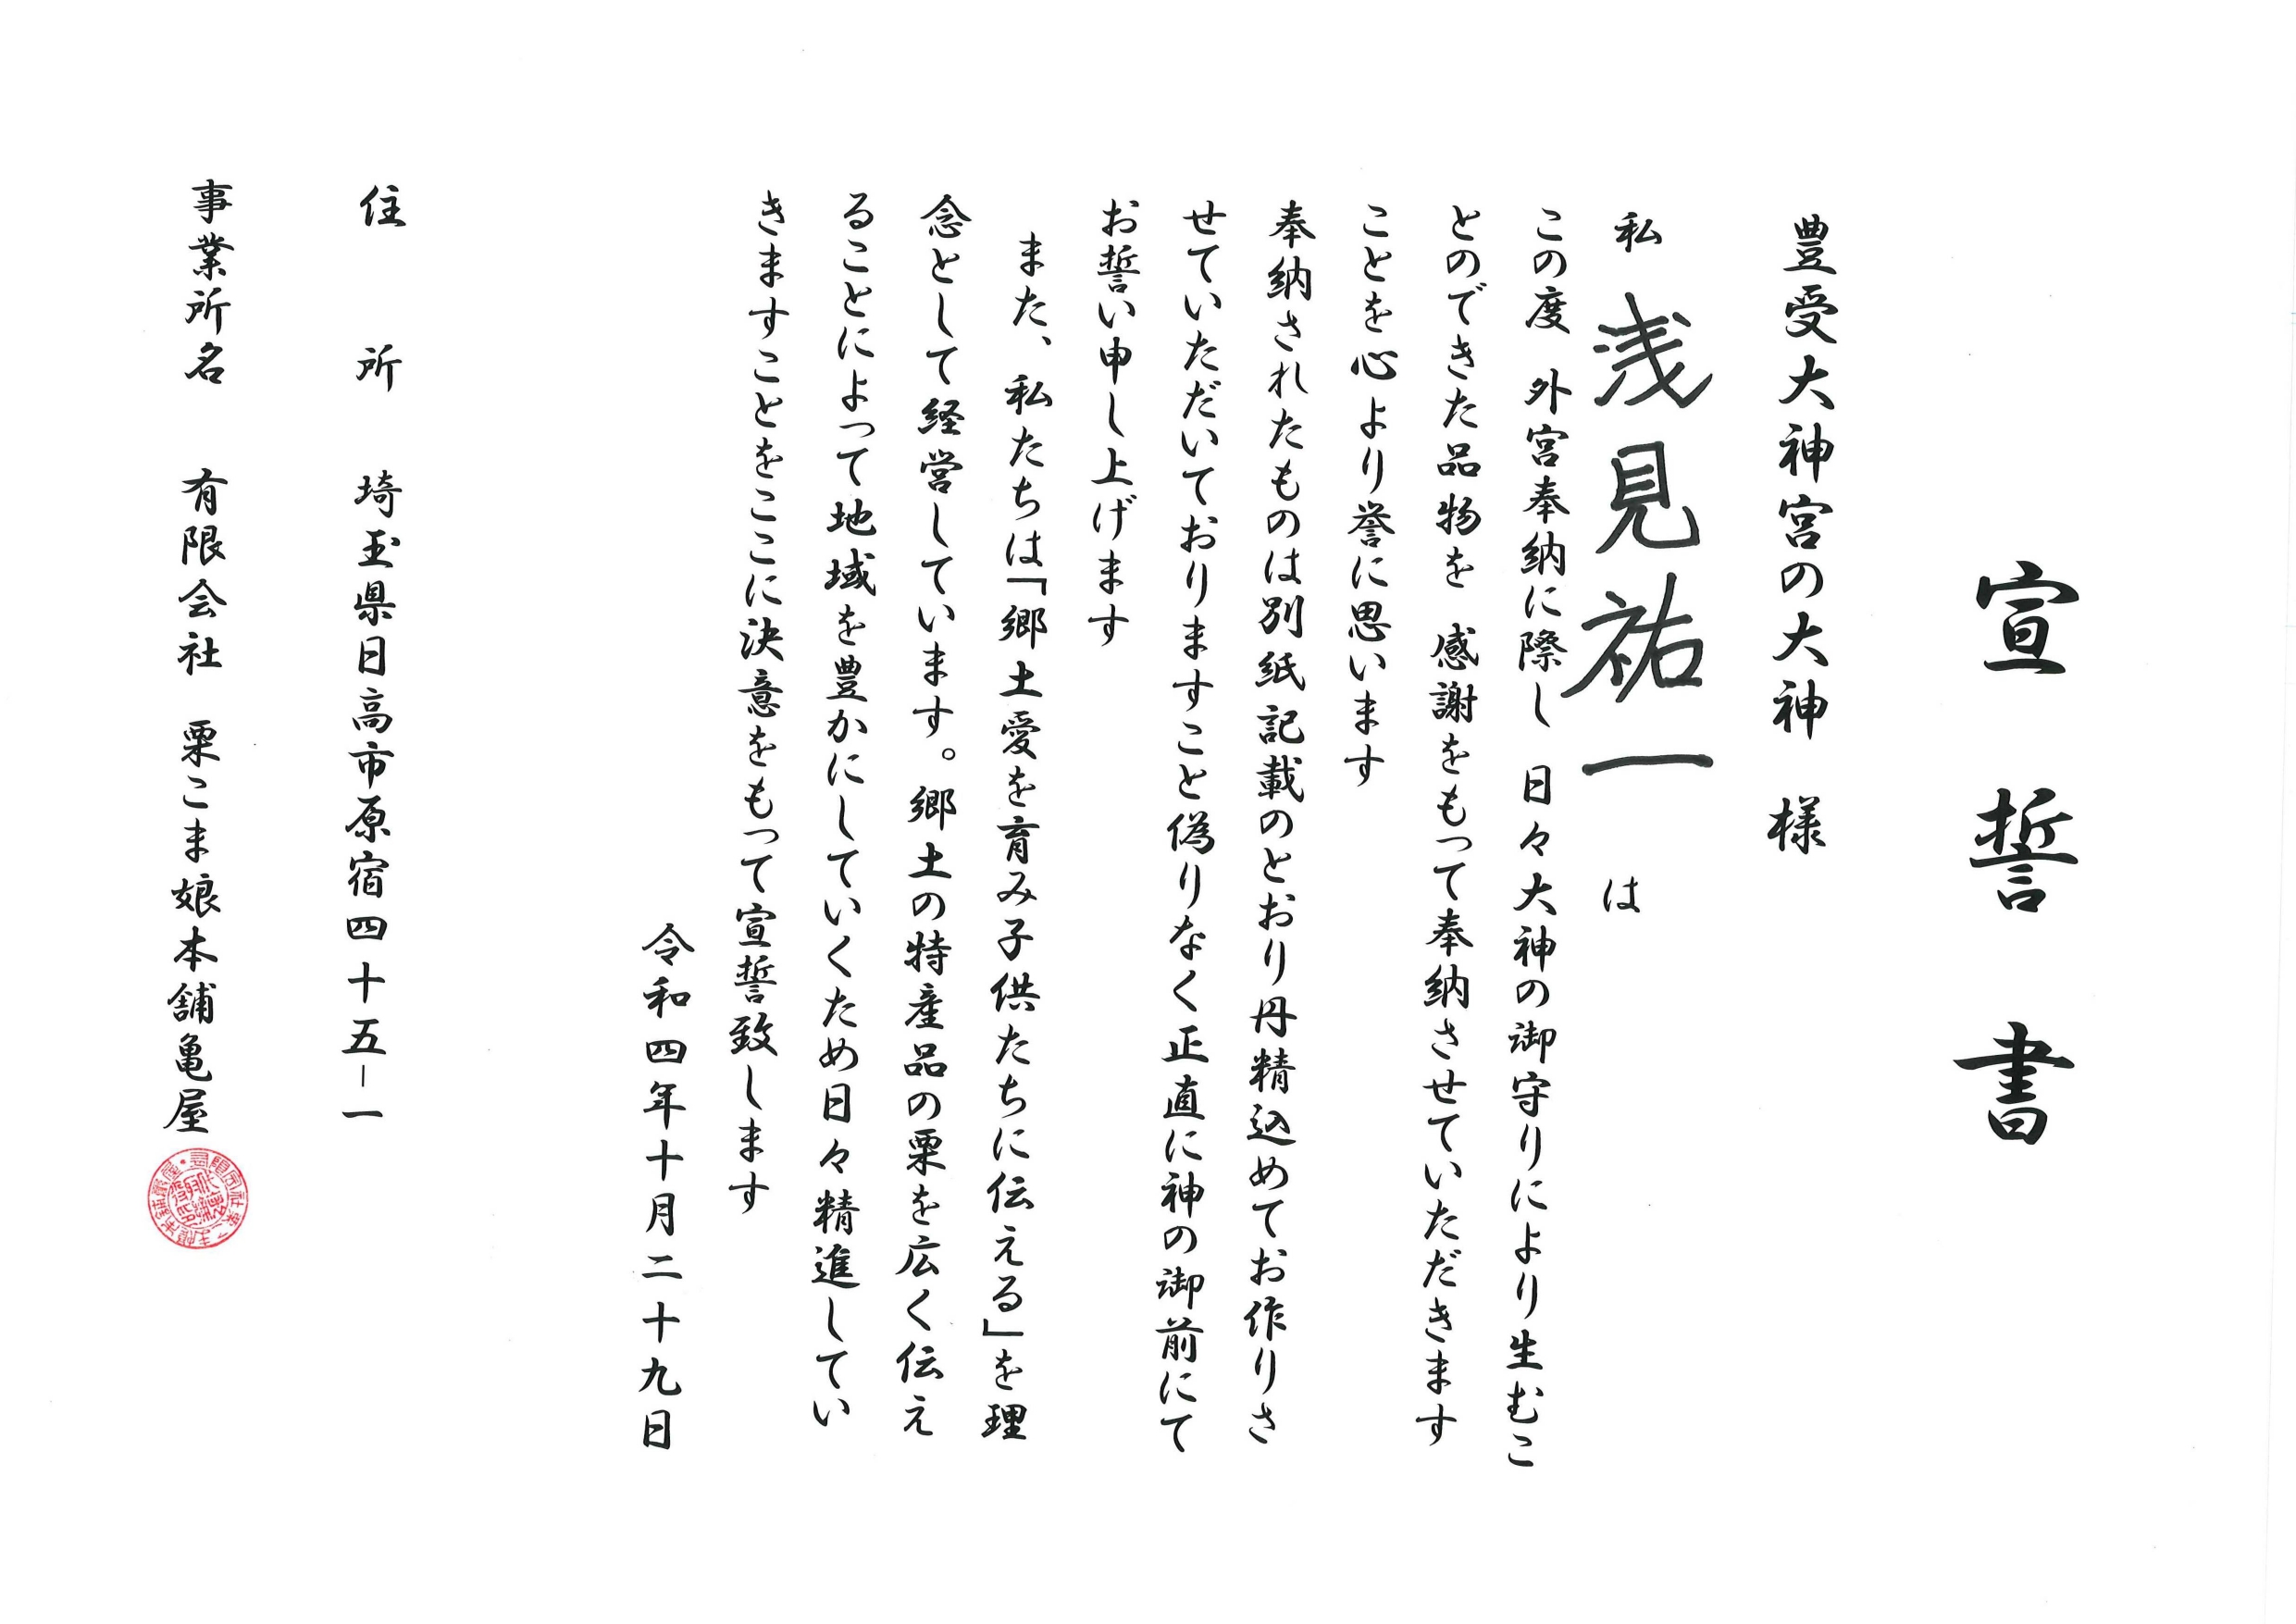 宣誓書
豊受大神宮の大神　様
私　浅見祐一　は
この度　外宮奉納に際し　日々大神の御守りにより生むこ
とのできた品物を　感謝をもって奉納させていただきます
ことを心より誉に思います
奉納されたものは別紙記載のとおり丹精込めてお作りさ
せていただいておりますこと偽りなく正直に神の御前にて
お誓い申し上げます
また、私たちは「郷土愛を育み子供たちに伝える」を理
念として経営しています。郷土の特産品の栗を広く伝え
ることによって地域を豊かにしていくため日々精進してい
きますことをここに決意をもって宣誓致します
令和四年十月二十九日
住　所　埼玉県日高市原宿四十五－一
事業所名　有限会社　栗こま娘本舗亀屋